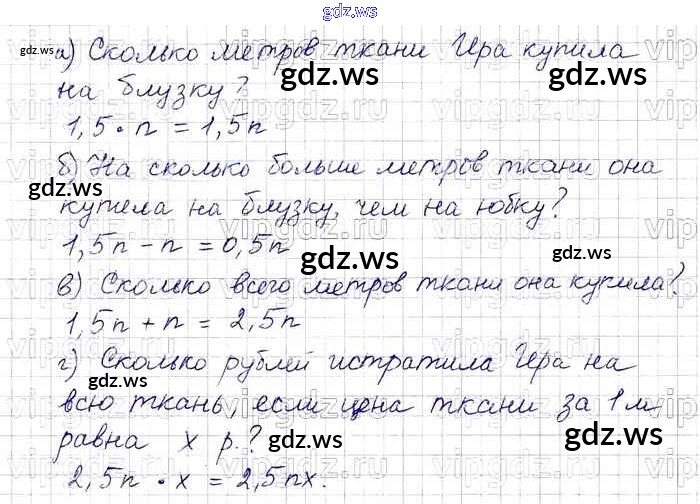 gdz.ws
а) Сколько метров ткани Ира купила
на блузку?
1,5 • n = 1,5n
б) На сколько больше метров ткани она
купила на блузку, чем на юбку?
1,5n - n = 0,5n
в) Сколько всего метров ткани она купила?
1,5n + n = 2,5n
г) Сколько рублей истратила Ира на
всю ткань, если цена ткани за 1 м
равна x р.?
2,5n • x = 2,5nx.
gdz.ws
gdz.ws
gdz.ws
gdz.ws
gdz.ws
gdz.ws
gdz.ws
gdz.ws
gdz.ws